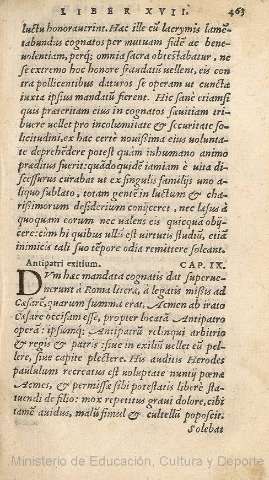 LIBER XVII. 463
luctu honorauerint. Hac ille cū lacrymis lamē-
tabundus cognatos per mutuam fidē ac bene-
uolentiam, perq; omnia sacra obtestabatur, ne
se extremo hoc honore fraudatū uellent, eis con
tra pollicentibus daturos se operam ut cuncta
iuxta ipsius mandata fierent. Hic sanè etiamsi
quis præteritam eius in cognatos sæuitiam tri-
buere uellet pro incolumitate & securitate sol-
licitudini, ex hac certè nouissima eius volunta-
te deprehēdere potest quam inhumano animo
præditus fuerit: quādoquidē iamiam è uita di-
scessurus curabat ut ex singulis familijs uno ali-
quo sublato, totam gentē in luctum & cha-
rissimorum desiderium conijceret, nec læsus à
quoquam eorum nec ualens eis quicquā obij-
cere: cùm hi quibus ulli est uirtutis studiū, etiā
inimicis tali suo tēpore odia remittere soleant.
Antipatri exitium. CAP. IX.
DVm hac mandata cognatis dat superue-
nerunt à Roma literæ, à legatis missis ad
Cæsarē, quarum summa erat, Acmen ab irato
Cæsare occisam esse, propter locatā Antipatro
operā: ipsumq; Antipatrū relinqui arbitrio
& regis & patris: siue in exiliū uellet eū pel-
lere, siue capite plectere. His auditis Herodes
paululum recreatus est uoluptate nuntij pœnæ
Acmes, & permissæ sibi potestatis liberè sta-
tuendi de filio: mox repetitus graui dolore, cibi
tamē auidus, malū simul & cultellū poposcit.
Solebat
Ministerio de Educación, Cultura y Deporte